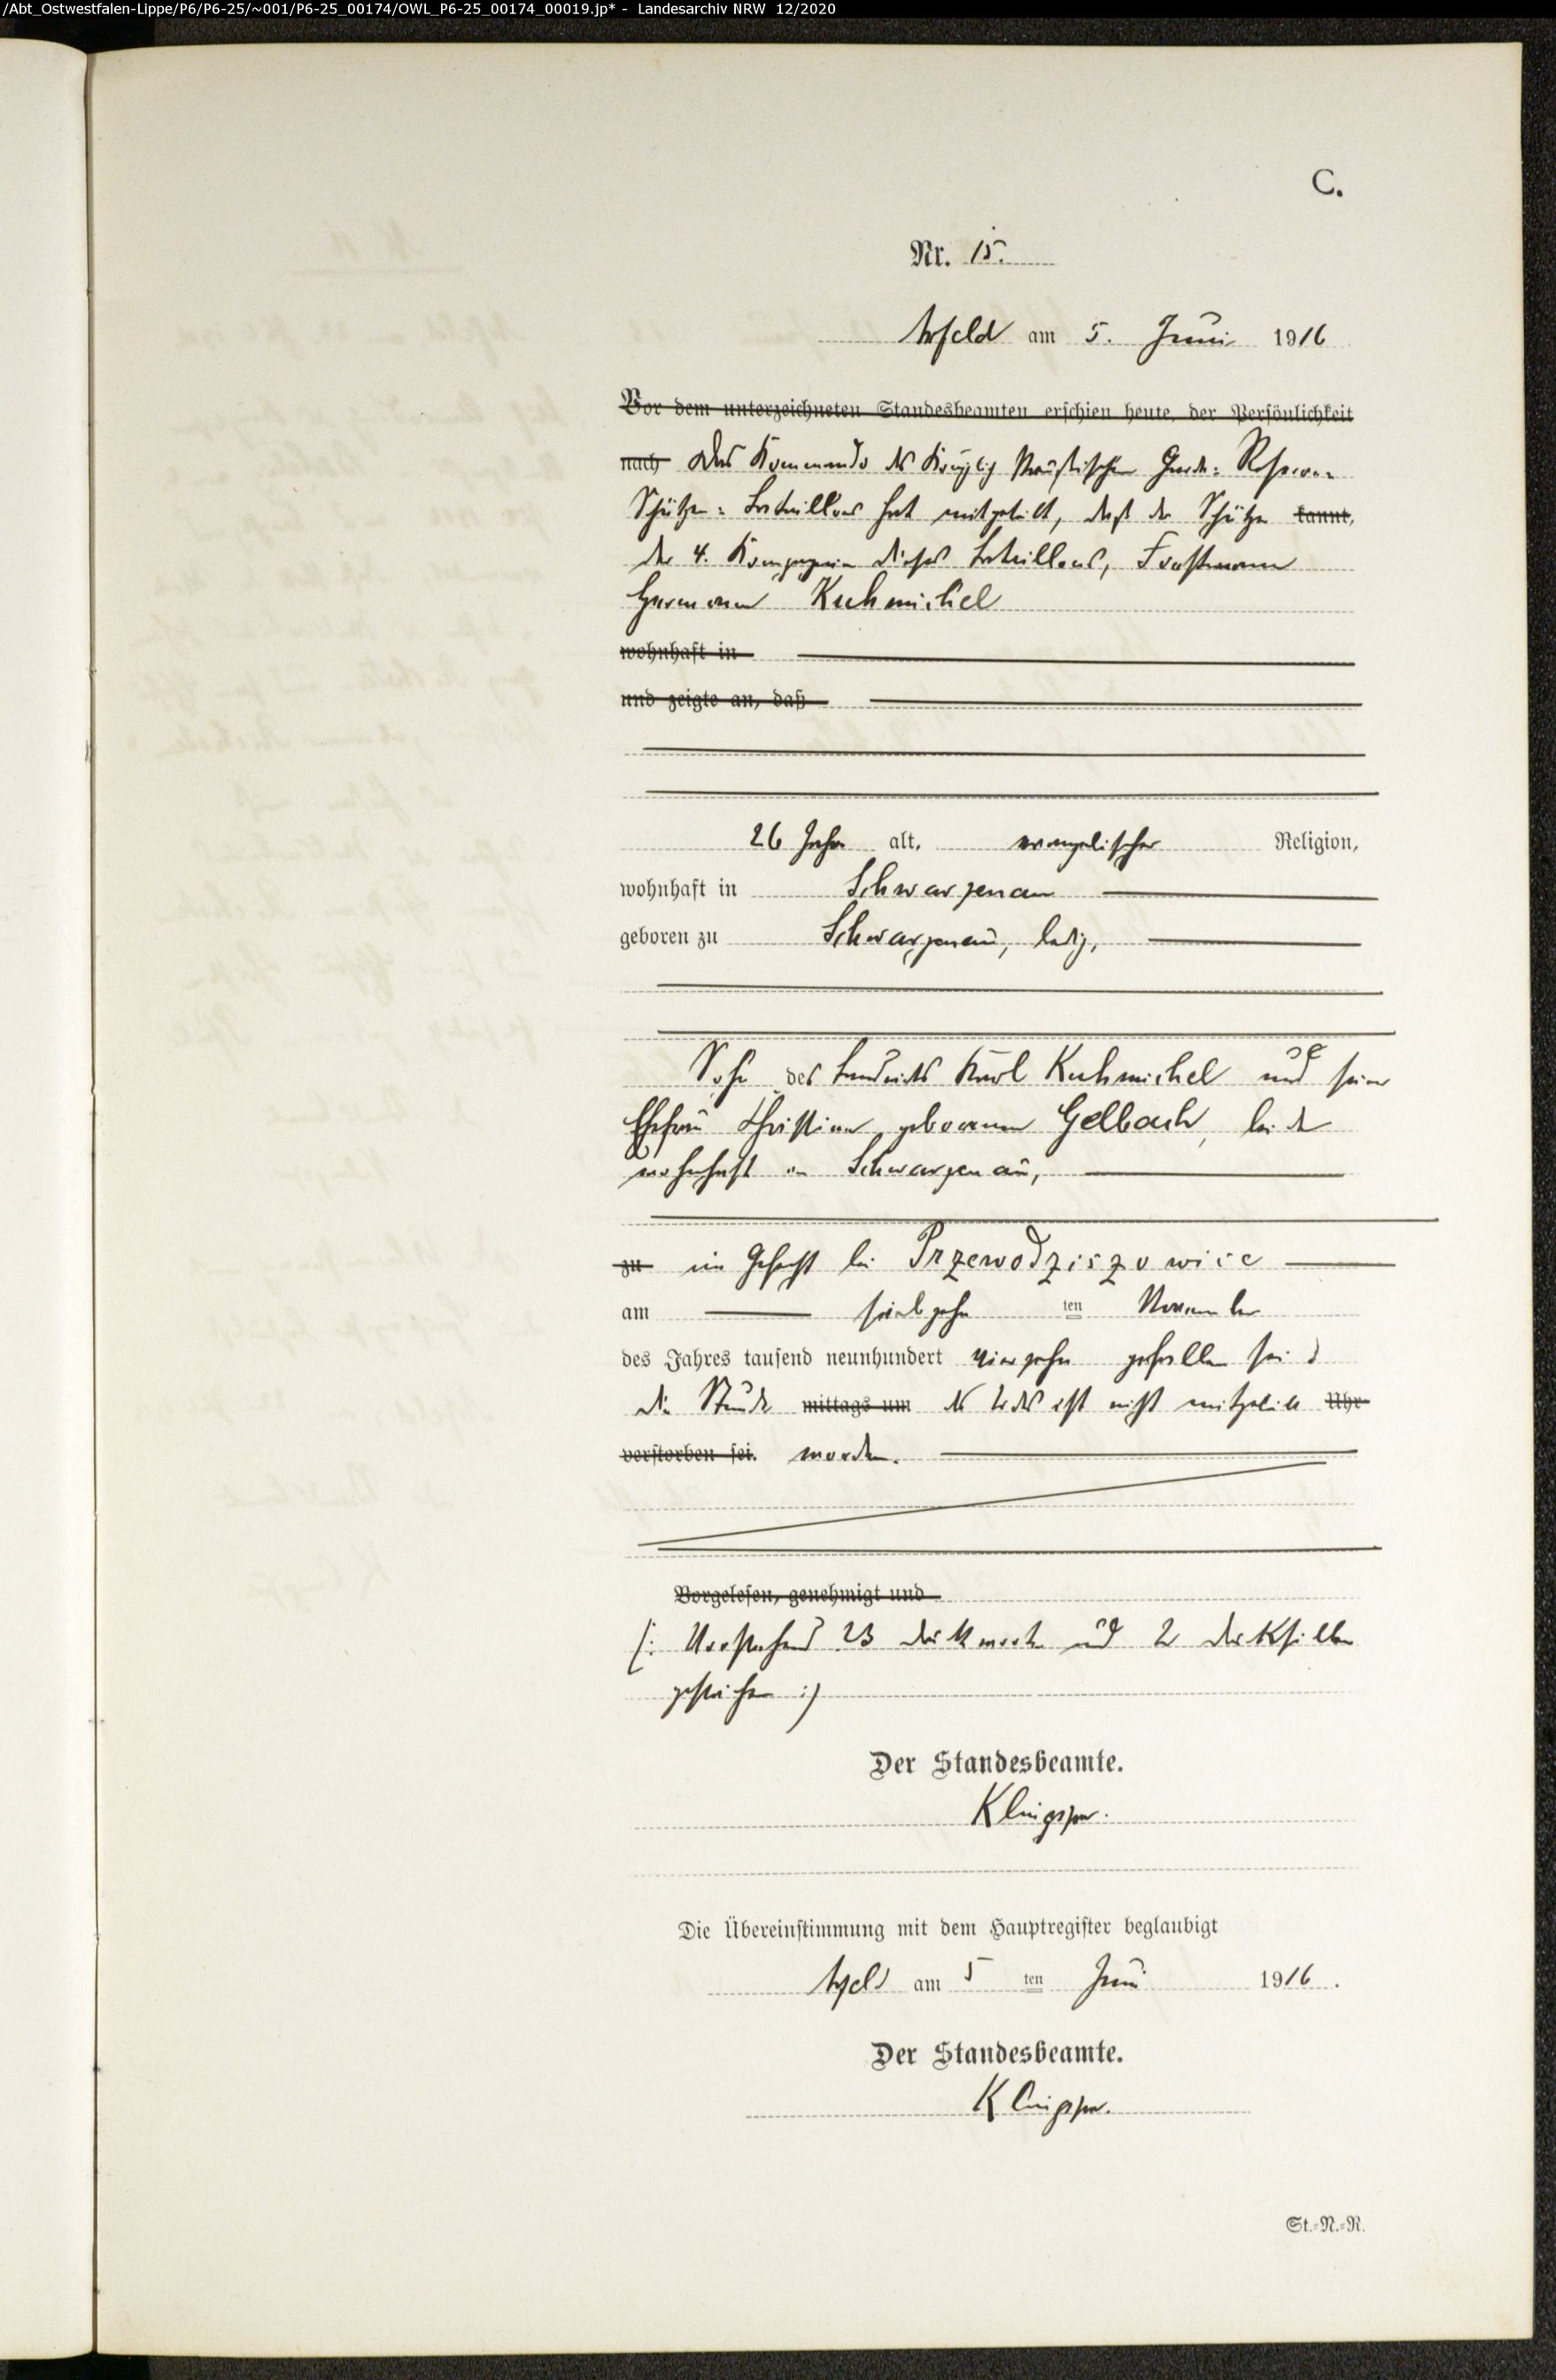 /Abt_Ostwestfalen-Lippe/P6/P6-25/~001/P6-25_00174/OWL_P6-25_00174_00019.jp* - Landesarchiv NRW 12/2020
C.
Nr. 15.
Arfeld am 5. Juni 1916
Vor dem unterzeichneten Standesbeamten erschien heute, der Persönlichkeit
nach Das Kommando des Königlich Preußischen Garde-Reserve-
Schützen-Bataillons hat mitgeteilt, daß der Schütze kannt,
der 4. Kompagnie dieses Bataillons, Forstmann
Hermann Kuhmichel
wohnhaft in
und zeigte an, daß
26 Jahre alt, evangelischer Religion,
wohnhaft in Schwarzenau
geboren zu Schwarzenau, ledig,
Sohn des Landwirts Karl Kuhmichel und seiner
Ehefrau Christiane geborenen Gelbach, beide
wohnhaft in Schwarzenau,
zu im Gefecht bei Przewodziszowice
am siebzehn ten November
des Jahres tausend neunhundert vierzehn gefallen sei
die Stunde mittags um des Todes ist nicht mitgeteilt Uhr
verstorben sei. worden.
Vorgelesen, genehmigt und
(: Vorstehend 23 Druckworte und 2 Drucksilben
gestrichen :)
Der Standesbeamte.
Klingspor.
Die Übereinstimmung mit dem Hauptregister beglaubigt
Arfeld am 5 ten Juni 1916.
Der Standesbeamte.
Klingspor.
St.-N.-R.